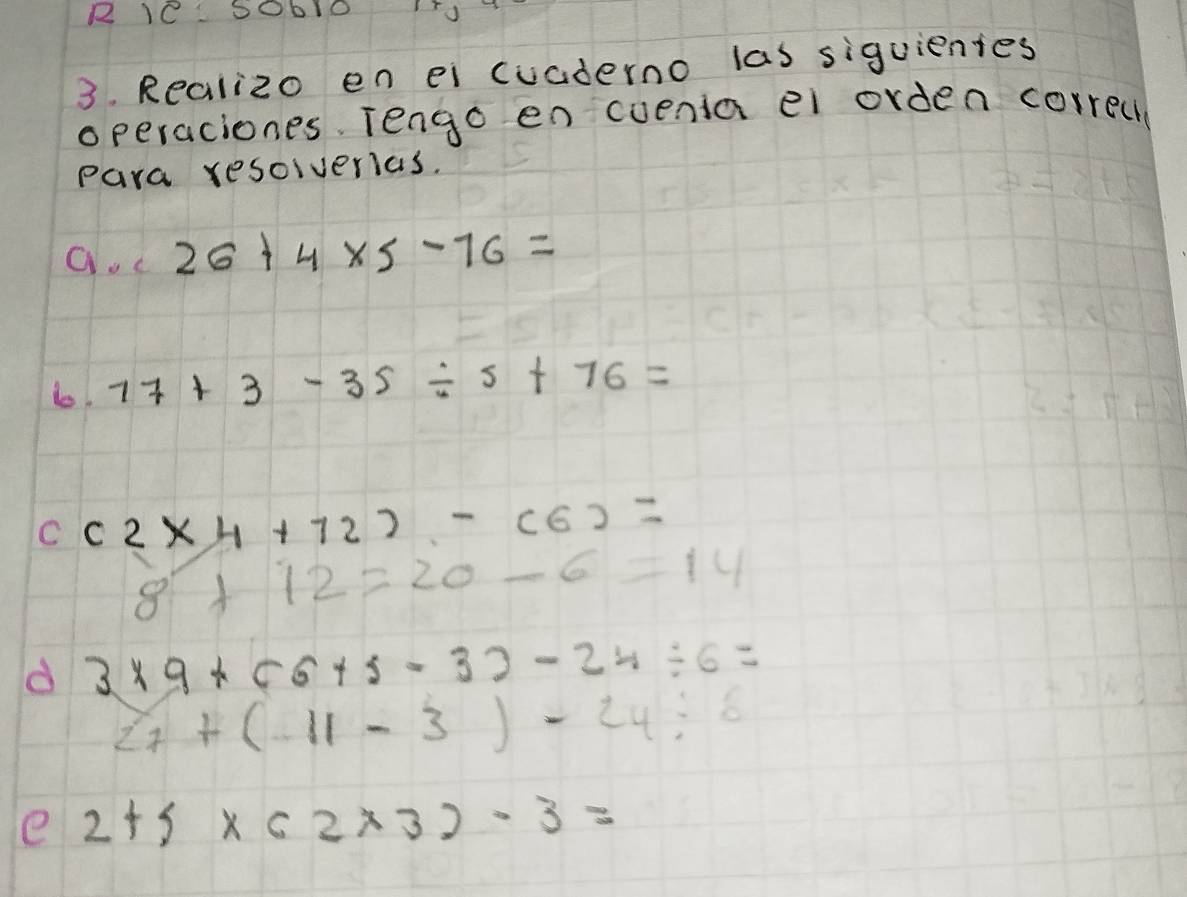 3. Realizo en el cuaderno las siguientes
operaciones. Tengo en cuenta el orden
para resolverlas.
a. 26 + 4 × 5 - 16 =
b. 17 + 3 - 35 ÷ 5 + 16 =
c (2 × 4 + 12) - (6) =
8 + 12 = 20 - 6 = 14
d 3 × 9 + (6 + 5 - 3) - 24 ÷ 6 =
27 + (11 - 3) - 24 ÷ 6
e 2 + 5 × (2 × 3) - 3 =